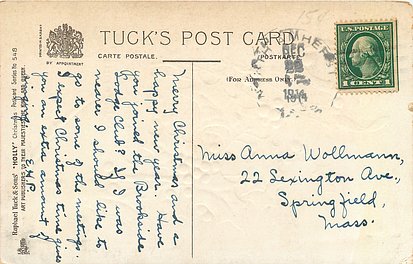 TUCK'S POST CARD
CARTE POSTALE.
POSTKARTE.
(For Address Only.)
BY APPOINTMENT
Raphael Tuck & Sons' "HOLLY" Christmas Postcard Series No 549
ART PUBLISHERS TO THEIR MAJESTIES THE KING AND QUEEN.
Merry Christmas and a
happy new year. Have
you joined the Brookside
Lodge Club? If I was
nearer I should like to
go to some of the meetings.
I expect Christmas time gives
you an extra amount of
E.H.P.
U.S. POSTAGE
1 CENT 1
DEC
1914
Miss Anna Wollmann,
22 Lexington Ave.,
Springfield,
Mass.